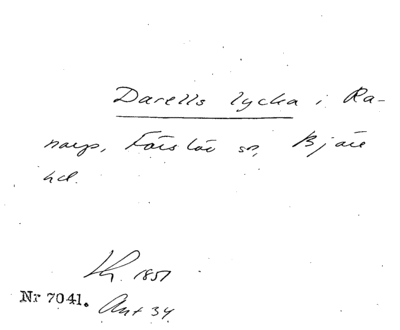 Darells lycka i Ra-
narp, Förslöv sn, Bjäre
hd.
Lh. 1851
Nr 7041. Ant 34